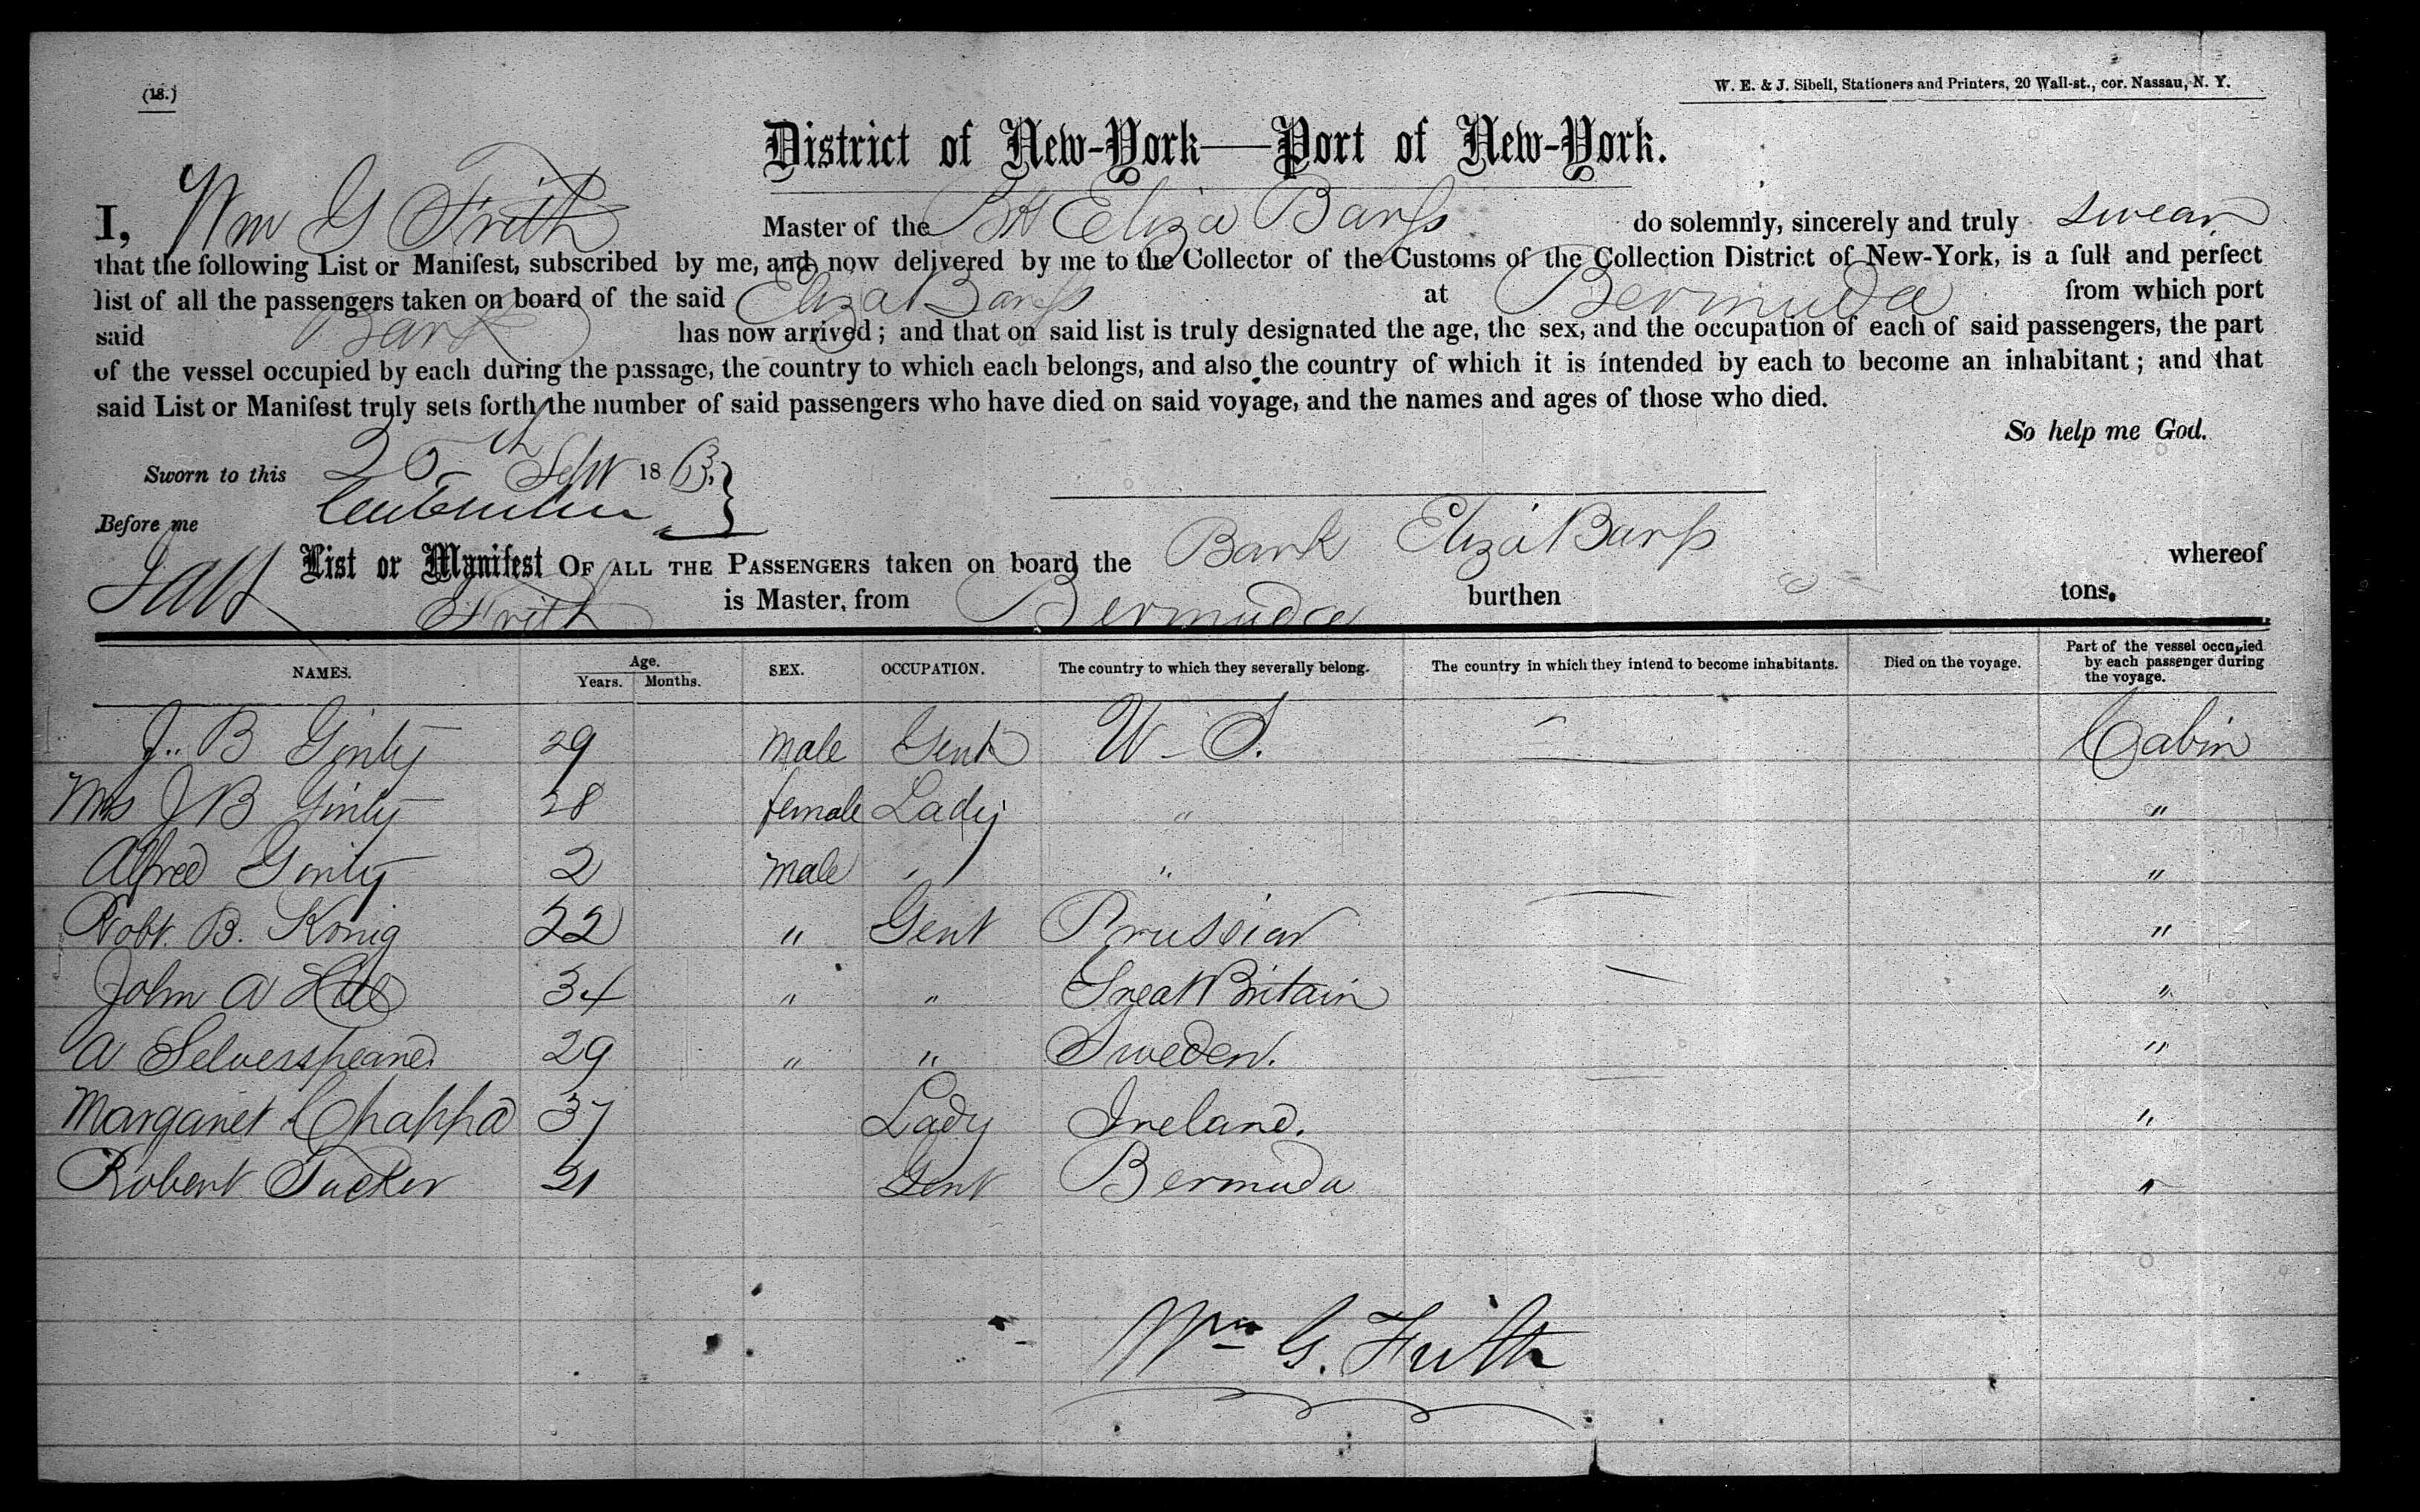 (18.)
W. E. & J. Sibell, Stationers and Printers, 20 Wall-st., cor. Nassau, N. Y.
District of New-York—Port of New-York.
I, Wm G Frith Master of the Eliza Barss do solemnly, sincerely and truly swear
that the following List or Manifest, subscribed by me, and now delivered by me to the Collector of the Customs of the Collection District of New-York, is a full and perfect
list of all the passengers taken on board of the said Eliza Barss at Bermuda from which port
said Bark has now arrived; and that on said list is truly designated the age, the sex, and the occupation of each of said passengers, the part
of the vessel occupied by each during the passage, the country to which each belongs, and also the country of which it is intended by each to become an inhabitant; and that
said List or Manifest truly sets forth the number of said passengers who have died on said voyage, and the names and ages of those who died.
So help me God.
Sworn to this 25th Sept 1863.
Before me
List or Manifest OF ALL THE PASSENGERS taken on board the Bark Eliza Barss whereof
Frith is Master, from Bermuda burthen tons.
NAMES. Age. Years. Months. SEX. OCCUPATION. The country to which they severally belong. The country in which they intend to become inhabitants. Died on the voyage. Part of the vessel occupied by each passenger during the voyage.
J. B Ginty 29 male Gent U-S. Cabin
Mrs J B Ginty 28 female Lady " "
Alfred Ginty 2 male " "
Robt. B. Konig 22 " Gent Prussian "
John A 34 " " Great Britain "
A 29 " " Sweden. "
Margaret 37 Lady Ireland. "
Robert Tucker 21 Gent Bermuda "
Wm G. Frith